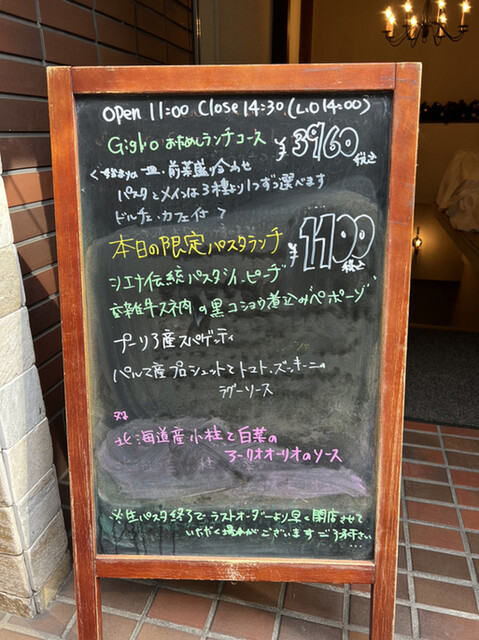 Open 11:00 Close 14:30 (L.O 14:00)
Giglio おためしランチコース ¥3960 税込
一皿・前菜盛り合わせ
パスタとメインは3種より1つずつ選べます
ドルチェ・カフェ付
本日の限定パスタランチ ¥1100 税込
シエナ伝統パスタ ピーチ
牛スネ肉の黒コショウ煮込み"ペポーゾ"
プーリア産スパゲッティ
パルマ産プロシュットとトマト・ズッキーニの
ラグーソース
又は
北海道産小柱と白菜の
アーリオオーリオのソース
※生パスタ終了でラストオーダーより早く閉店させて
いただく場合がございます ご了承下さい